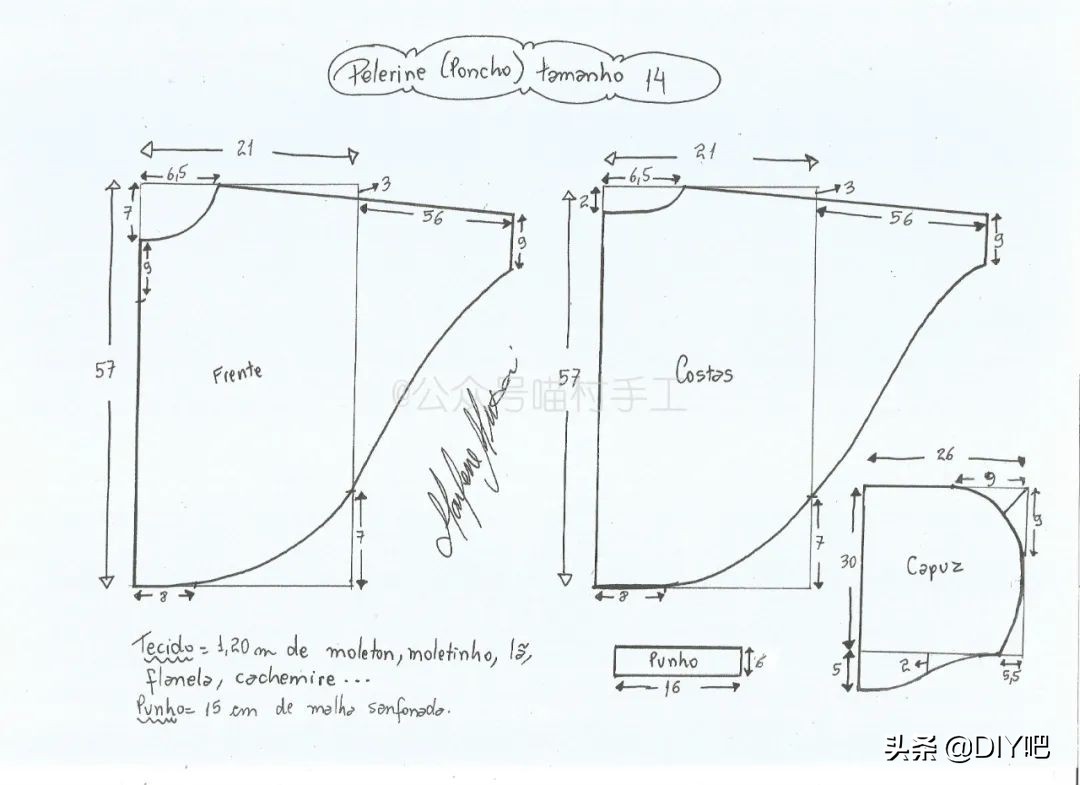 Pelerine (Poncho) tamanho 14
21
6,5
3
7
56
9
9
57
Frente
7
8
21
6,5
3
2
56
9
57
Costas
7
8
26
9
9
30
Capuz
5
2
5,5
Punho
6
16
Tecido = 1,20 m de moleton, moletinho, lã,
flanela, cachemire ...
Punho = 15 cm de malha sanfonada.
@公众号喵村手工
头条 @DIY吧